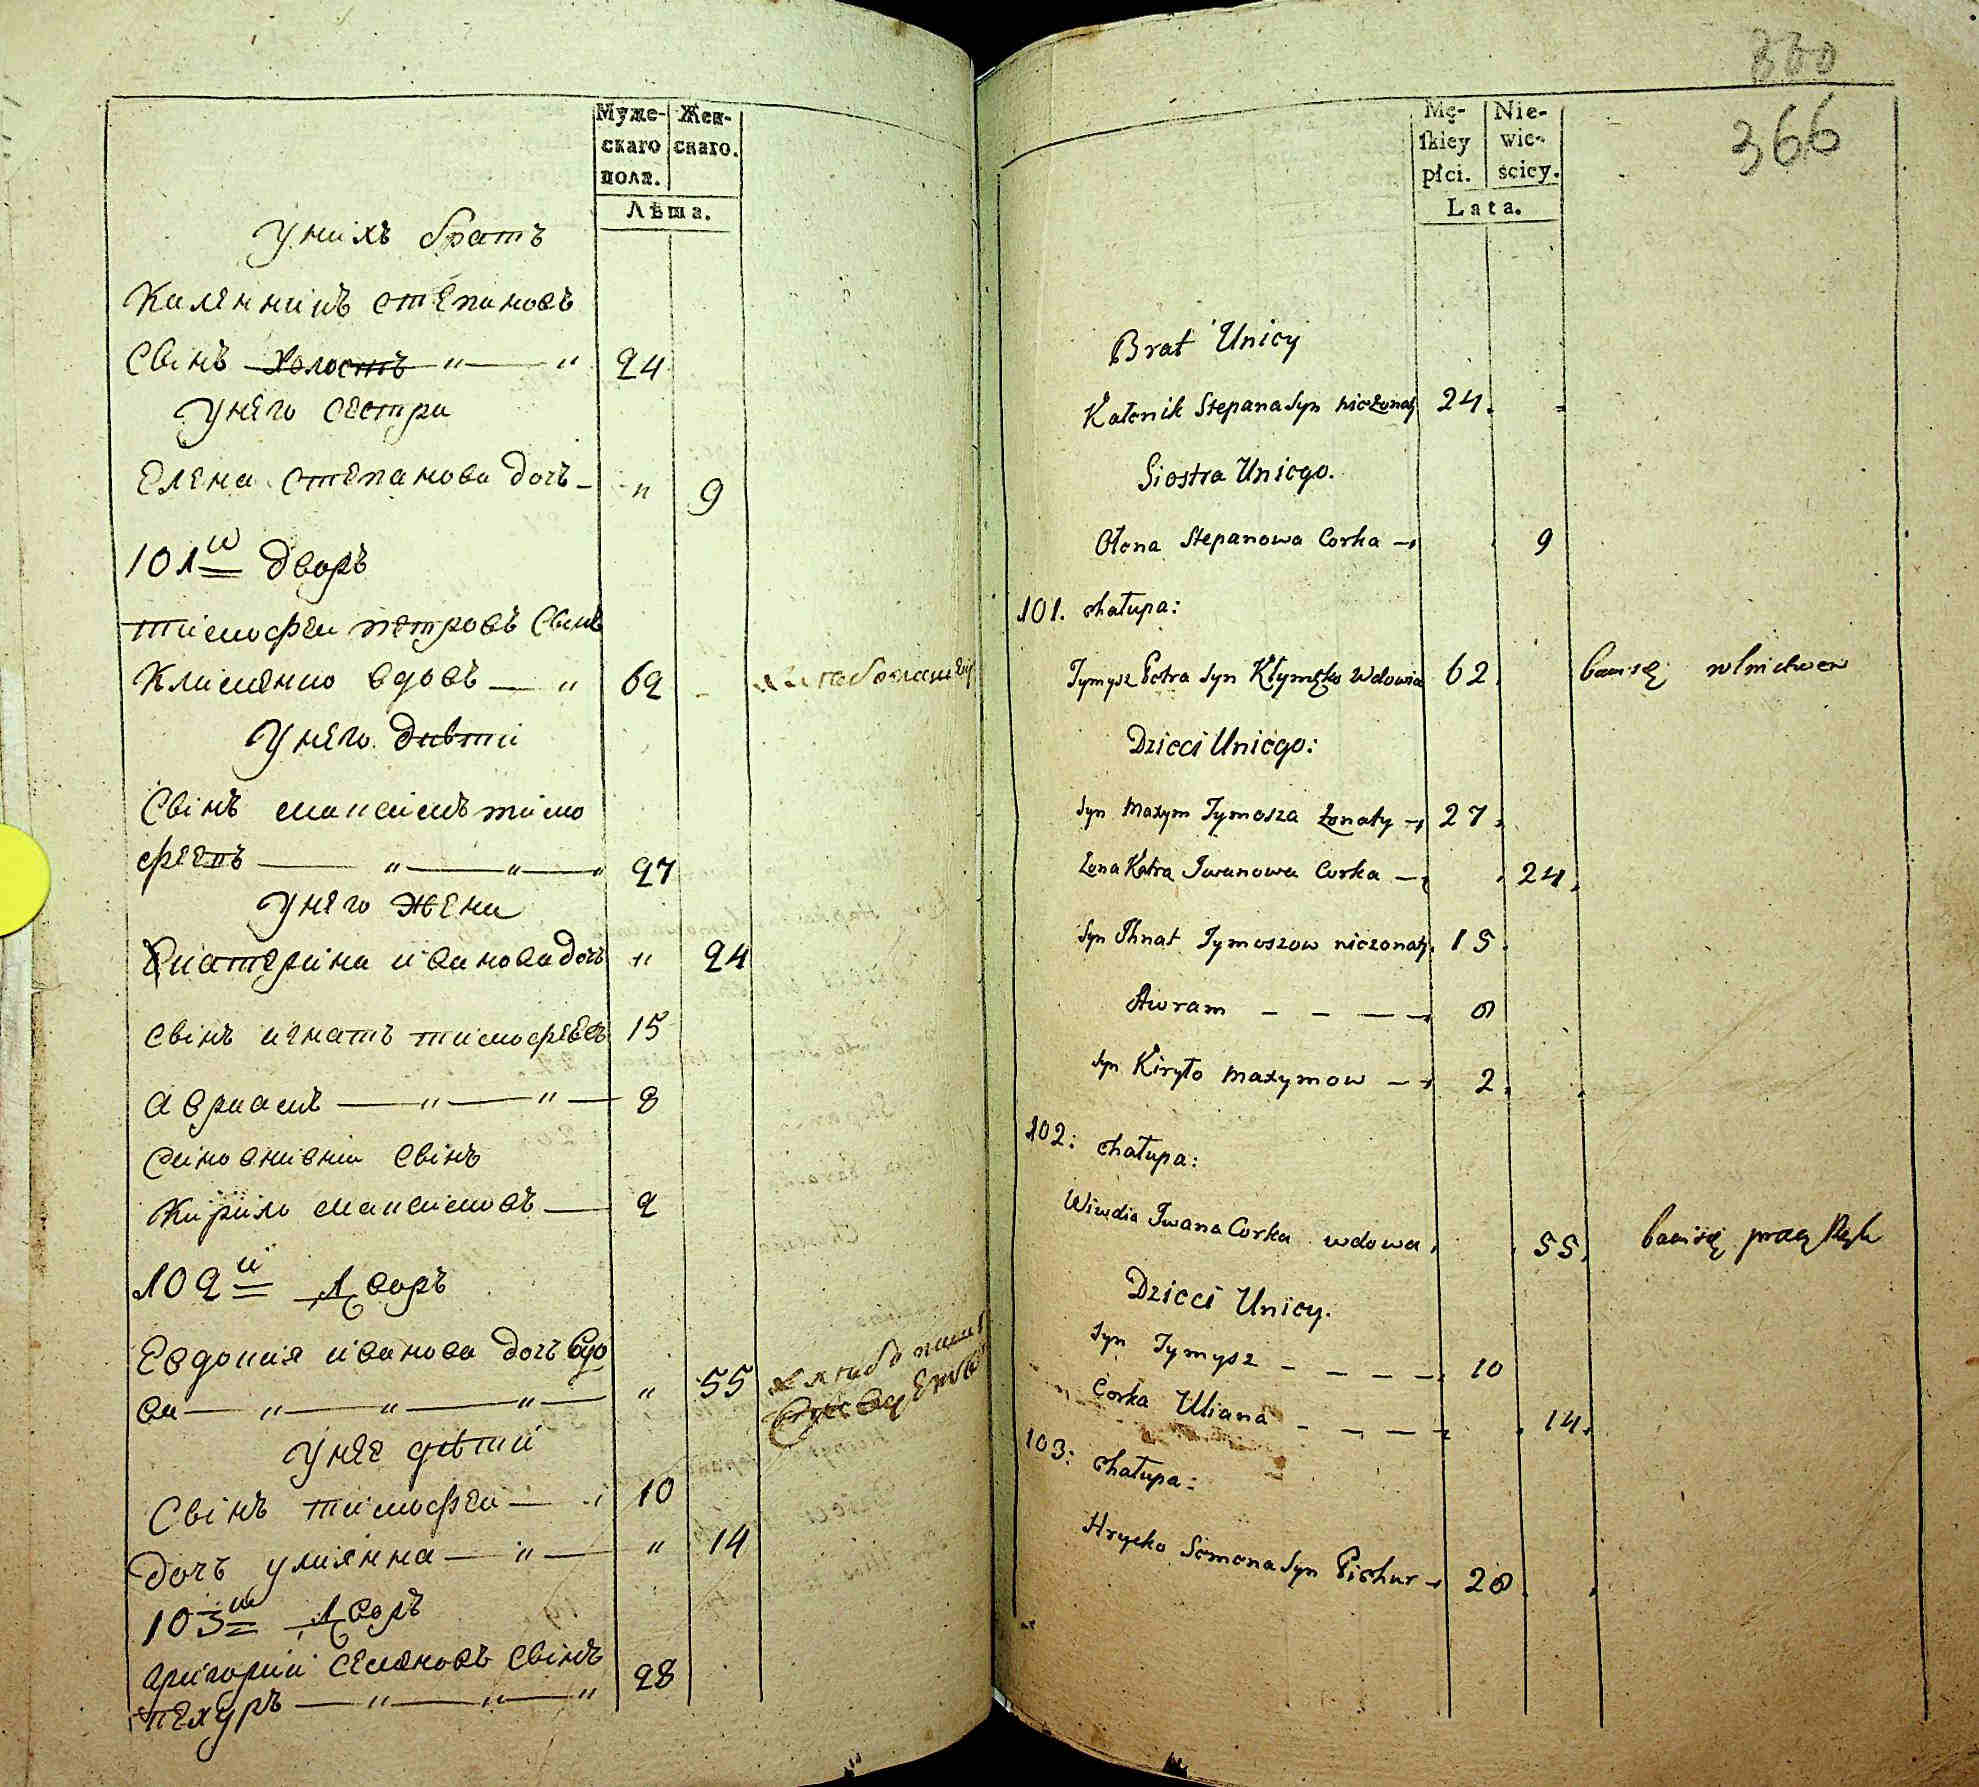 Муже-
скаго
пола.
Жен-
скаго.
Лѣта.
у нихъ братъ
Каленникъ степановъ
Свінъ холостъ 24
у него сестра
Елена степанова дочь 9
101й дворъ
тимофеи петровъ Свинъ
Клименко вдовъ 62
у него дѣвти
Свінъ максимъ тимо
фѣевъ 27
у него жена
Екатерина иванова дочь 24
свінъ игнатъ тимофѣевъ 15
авраамъ 8
Свінъ
Кирило максимовъ 2
102й Дворъ
Евдокия иванова дочь вдо
ва 55
у нее дѣтии
Свінъ тимофеи 10
Дочь улиянна 14
103й Дворъ
григории семеновъ свінъ
пехуръ 28
330
366
Mę-
ſkiey
płci.
Nie-
wie-
ściey.
Lata.
Brat Unicy
Kalenik Stepana Syn nieżonaty 24.
Siostra Uniego.
Ołena Stepanowa Corka 9
101. chałupa:
Tymysz Petra Syn Kłymęko Wdowia 62. bawi się rolnictwem
Dzieci Uniego:
Syn Maxym Tymosza żonaty 27.
Żona Katra Jwanowa Corka 24.
Syn Jhnat Tymoszow nieżonaty. 15.
Awram 8
Syn Kiryło Maxymow 2.
102: chałupa:
Wiwdia Jwana Corka wdowa. 55. bawi się
Dzieci Unicy.
Syn Tymysz 10
Corka Uliana 14.
103: chałupa:
Hryćko Semena Syn Pichur 28